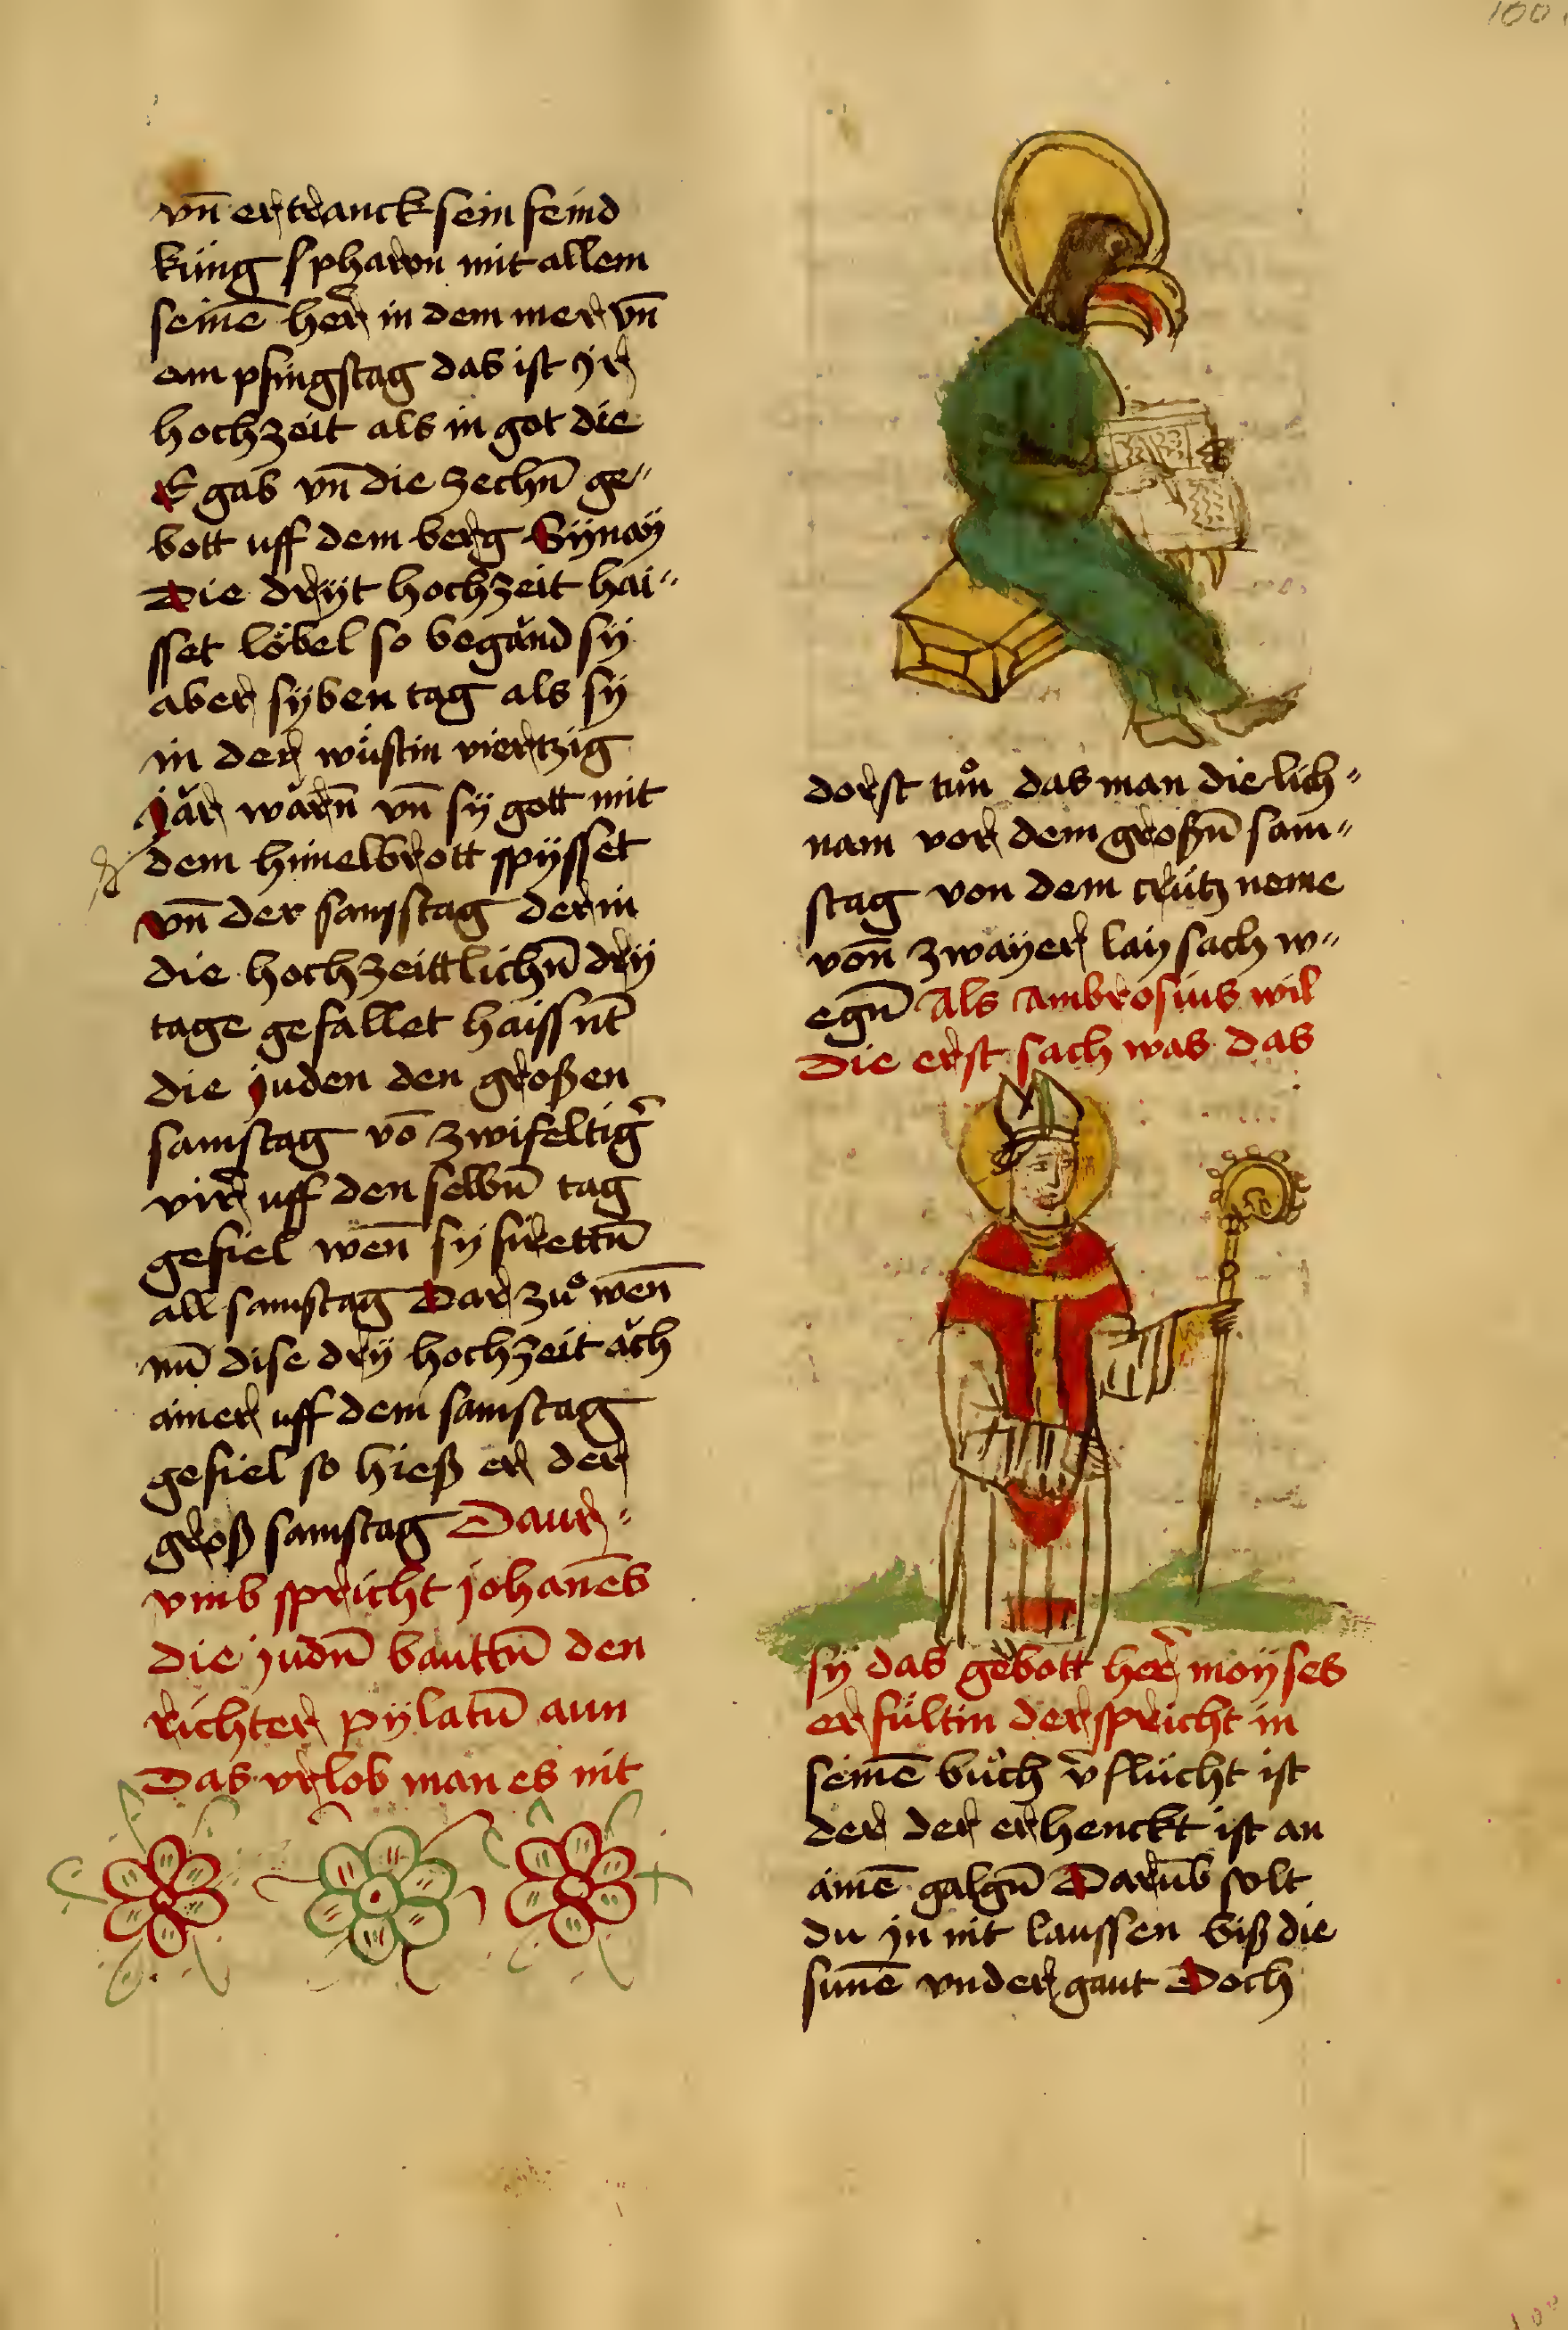 100
vn̄ ertranck sein feind
küng spharon mit allem
seinē her̃ in dem mer vn̄
am pfingstag das ist ir
hochzeit als in got die
E gab vn̄ die zechn̄ ge〃
bott uff dem berg Sÿnaÿ
Die drÿt hochzeit hai〃
sset löbel so begänd sÿ
aber sÿben tag als sÿ
in der wüstin viertzig
jar warn̄ vn̄ sÿ gott mit
dem himelbrott spÿsset
vn̄ der samstag der in
die hochzeittlichn̄ drÿ
tage gefallet haissnt̄
die juden den großen
samstag vō zwifeltigr̃
vir̃ uff den selbn̄ tag
gefiel wen̄ sÿ firettn̄
all samstag Dar zuͦ wen̄
nu͂ dise drÿ hochzeit ach
ainer uff dem samstag
gefiel so hieß er der
groß samstag Daur〃
vmb spricht johanēs
die judn̄ bauttn̄ den
richter pÿlatū aun
Das vrlob man es nit
dorst tuͦn das man die lich〃
nam vor dem großn̄ sam〃
stag von dem crütz neme
von̄ zwaÿer laÿ sach w〃
egn̄ Als Ambrosius wil
Die erst sach was das
sÿ das gebott her̃ moÿses
erfültin der spricht in
seinē buͦch v̄flücht ist
der der erhenckt ist an
ainē galgn̄ Darūb solt
du in nit laussen biß die
sunē vndergaut Doch